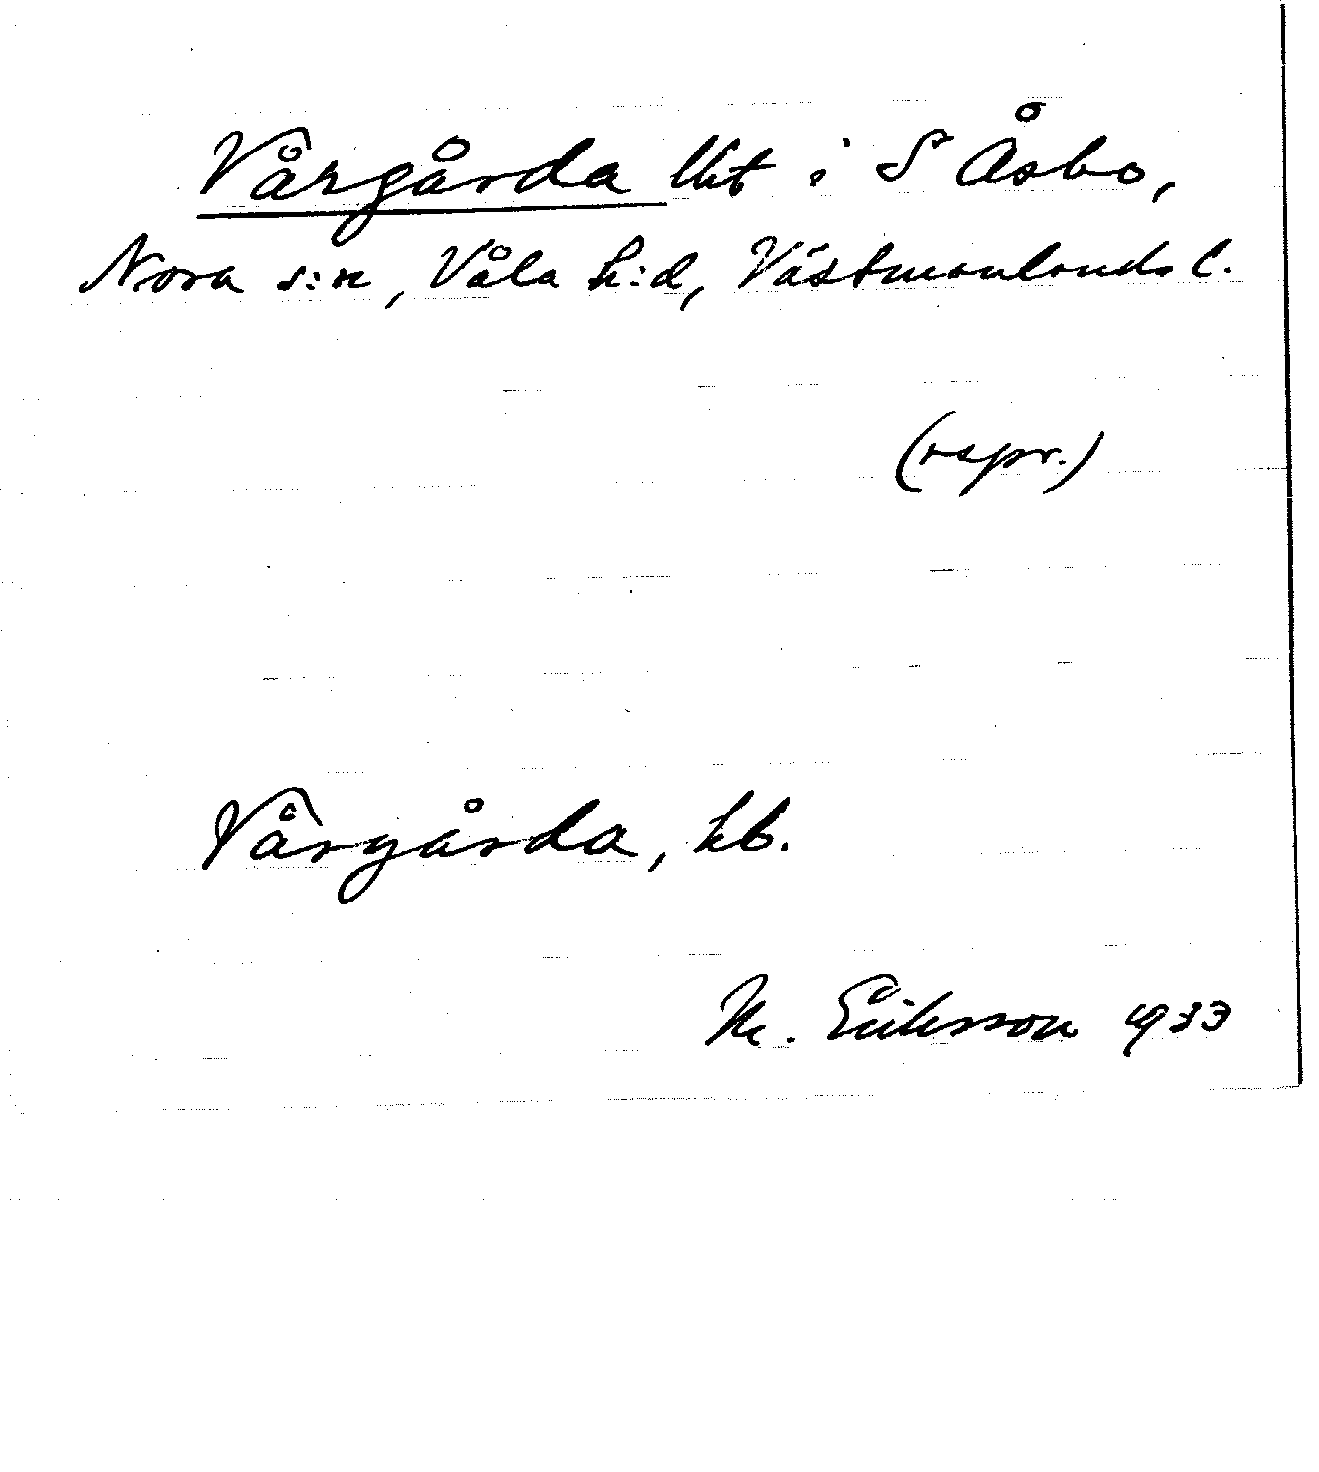 Vårgårda lht i S Åsbo,
Nora s:n, Våla h:d, Västmanlands l.
(rspr.)
Vårgårda, hb.
M. Eriksson 1933